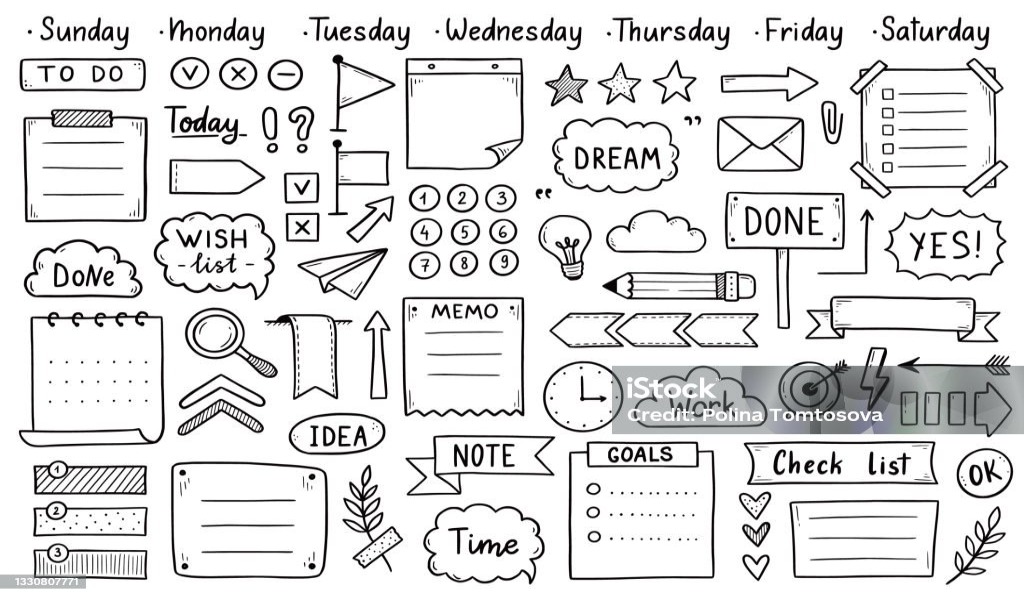 · Sunday · Monday · Tuesday · Wednesday · Thursday · Friday · Saturday
TO DO
Today
! ?
DREAM
”
“
1 2 3
4 5 6
7 8 9
WISH
- list -
DoNe
DONE
YES!
MEMO
iStock
Credit: Polina Tomtosova
Work
IDEA
NOTE
GOALS
Check list
OK
1
2
3
Time
1330807771